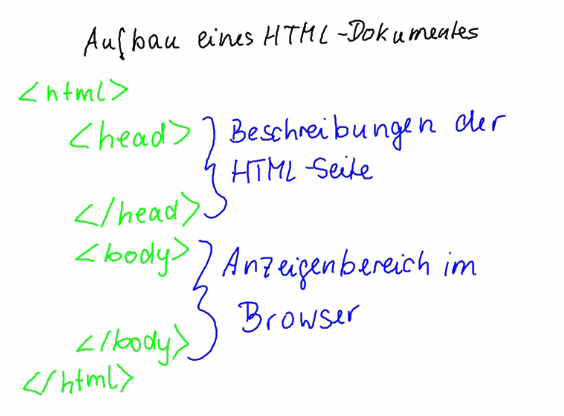 Aufbau eines HTML-Dokumentes
<html>
<head> Beschreibungen der
HTML-Seite
</head>
<body> Anzeigenbereich im
Browser
</body>
</html>